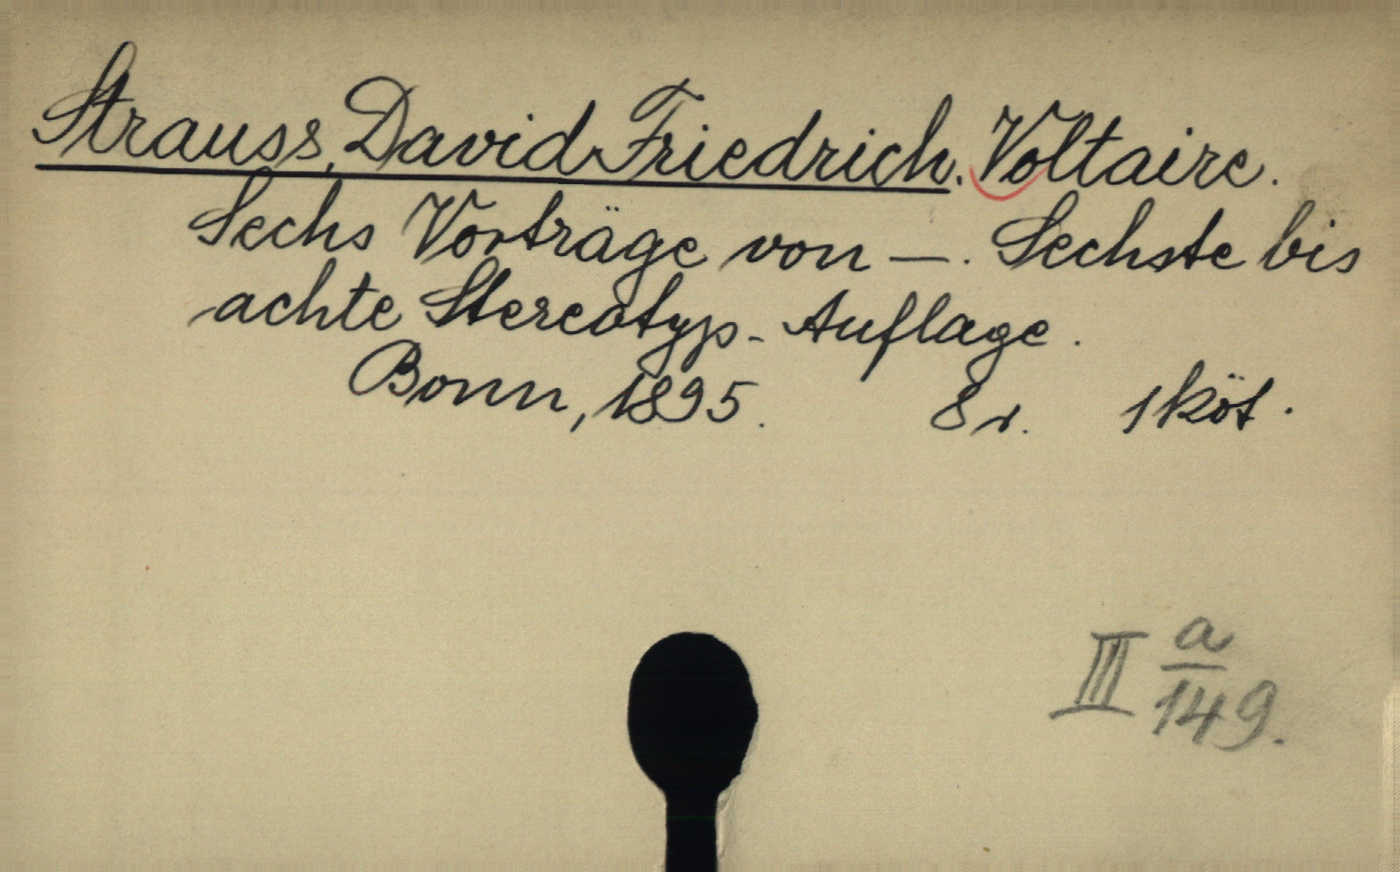 Strauss, David Friedrich. Voltaire.
Sechs Vorträge von —. Sechste bis
achte Stereotyp-Auflage.
Bonn, 1895. 8r. 1 köt.
III a/149.